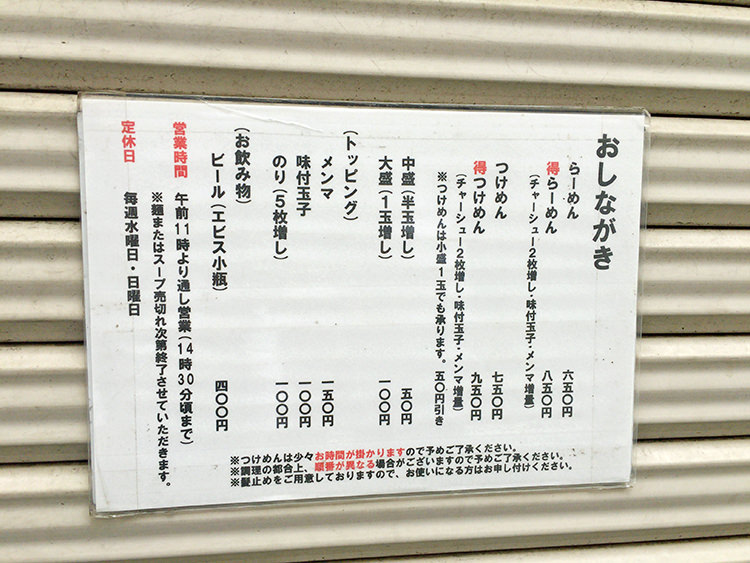 おしながき
らーめん 六五〇円
得らーめん 八五〇円
(チャーシュー2枚増し・味付玉子・メンマ増量)
つけめん 七五〇円
得つけめん 九五〇円
(チャーシュー2枚増し・味付玉子・メンマ増量)
※つけめんは小盛1玉でも承ります。五〇円引き
中盛(半玉増し) 五〇円
大盛(1玉増し) 一〇〇円
(トッピング)
メンマ 一五〇円
味付玉子 一〇〇円
のり(5枚増し) 一〇〇円
(お飲み物)
ビール(エビス小瓶) 四〇〇円
営業時間 午前11時より通し営業(14時30分頃まで)
※麺またはスープ売切れ次第終了させていただきます。
定休日 毎週水曜日・日曜日
※つけめんは少々お時間が掛かりますので予めご了承ください。
※調理の都合上、順番が異なる場合がございますので予めご了承ください。
※髪止めをご用意しておりますので、お使いになる方はお申し付けください。